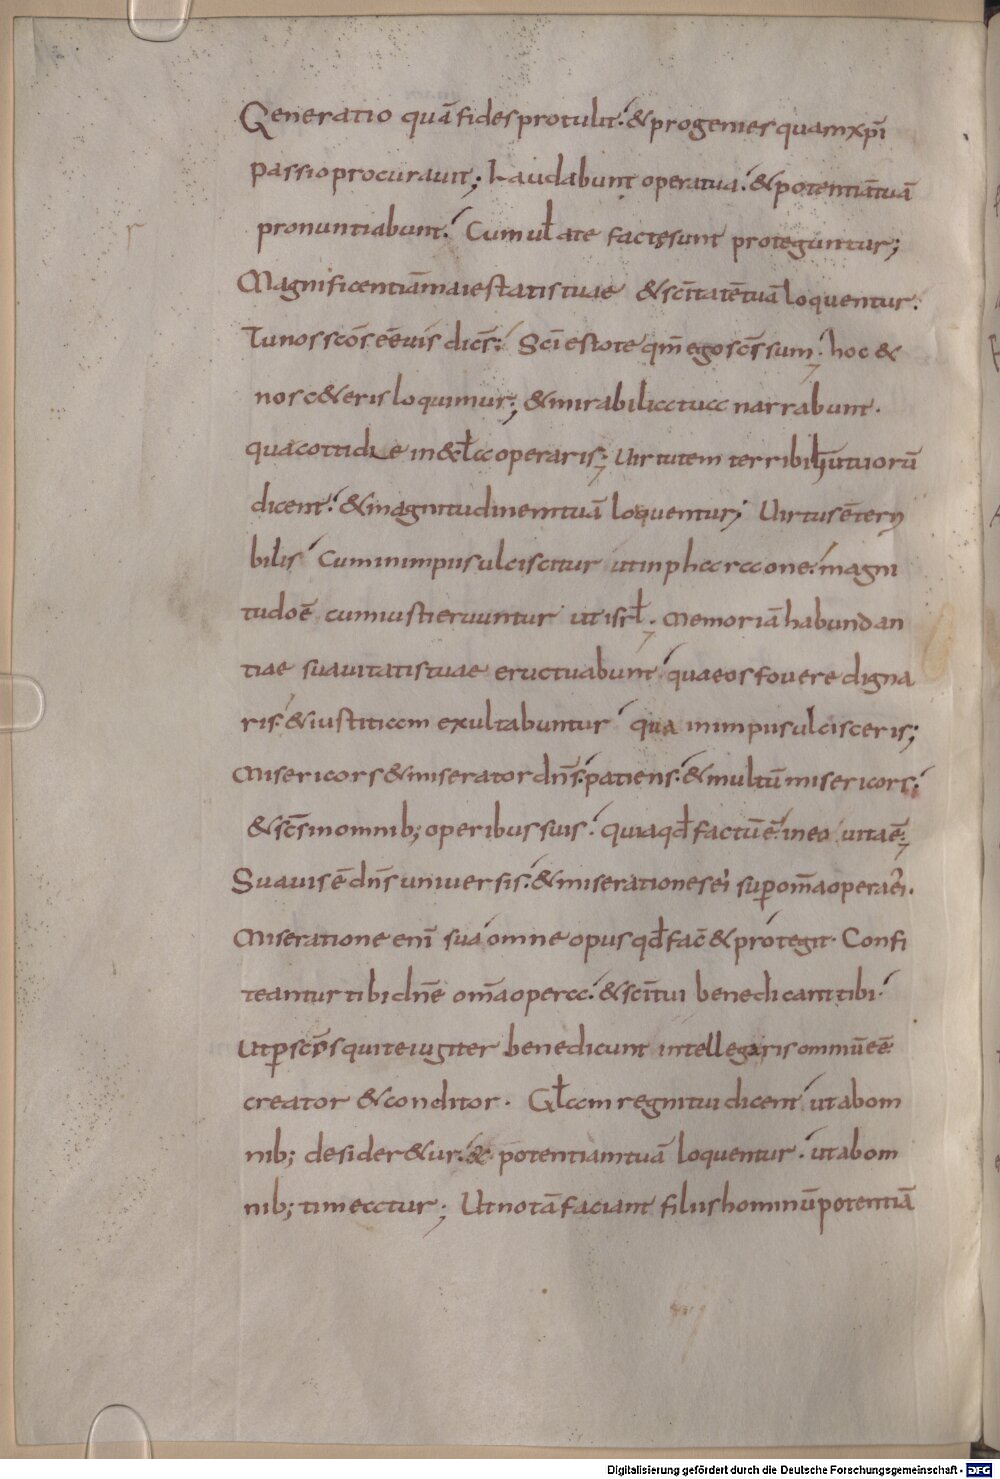 Generatio quā fides protulit; & progenies quam xp̄i
passio procuravit; Laudabunt opera tua; & potentiā tuā
pronuntiabunt; Cum ul̄ ate factę sunt proteguntur;
Magnificentiā maiestatis tuae & sc̄itatē tuā loquentur;
Tu nos sc̄os eē vis dic̄s; Sc̄i estote qm̄ ego sc̄s sum; hoc &
nos c&eris loquimur; & mirabilia tua narrabunt.
qua cottidie in &cl̄a operaris; Uirtutem terribiliū tuorū
dicent; & magnitudinem tuā loquentur; Uirtus ē terri
bilis Cum in impiis ulciscitur ut in pharaone; magni
tudo ē cum iusti eruuntur ut isrl̄; Memoriā habundan
tiae suavitatis tuae eructuabunt quae os fovere digna
ris; & iustitiam exultabuntur qua in impiis ulcisceris;
Misericors & miserator dn̄s; patiens; & multū misericors;
& sc̄s in omnib; operibus suis; quia qd̄ factū ē; in eo vita ē;
Suavis ē dn̄s universis; & miserationes ei sup om̄a opera ei.
Miseratione eni̅ sua omne opus qd̄ fac̄ & protegit. Confi
teantur tibi dn̄e om̄a opera; & sc̄i tui benedicant tibi;
Ut p sc̄os qui te iugiter benedicunt intellegaris omniū eē
creator & conditor. Gl̄am regni tui dicent ut ab om
nib; desider&ur; & potentiam tuā loquentur; ut ab om
nib; timeatur; Ut notā faciant filiis hominū potentiā
Digitalisierung gefördert durch die Deutsche Forschungsgemeinschaft - DFG